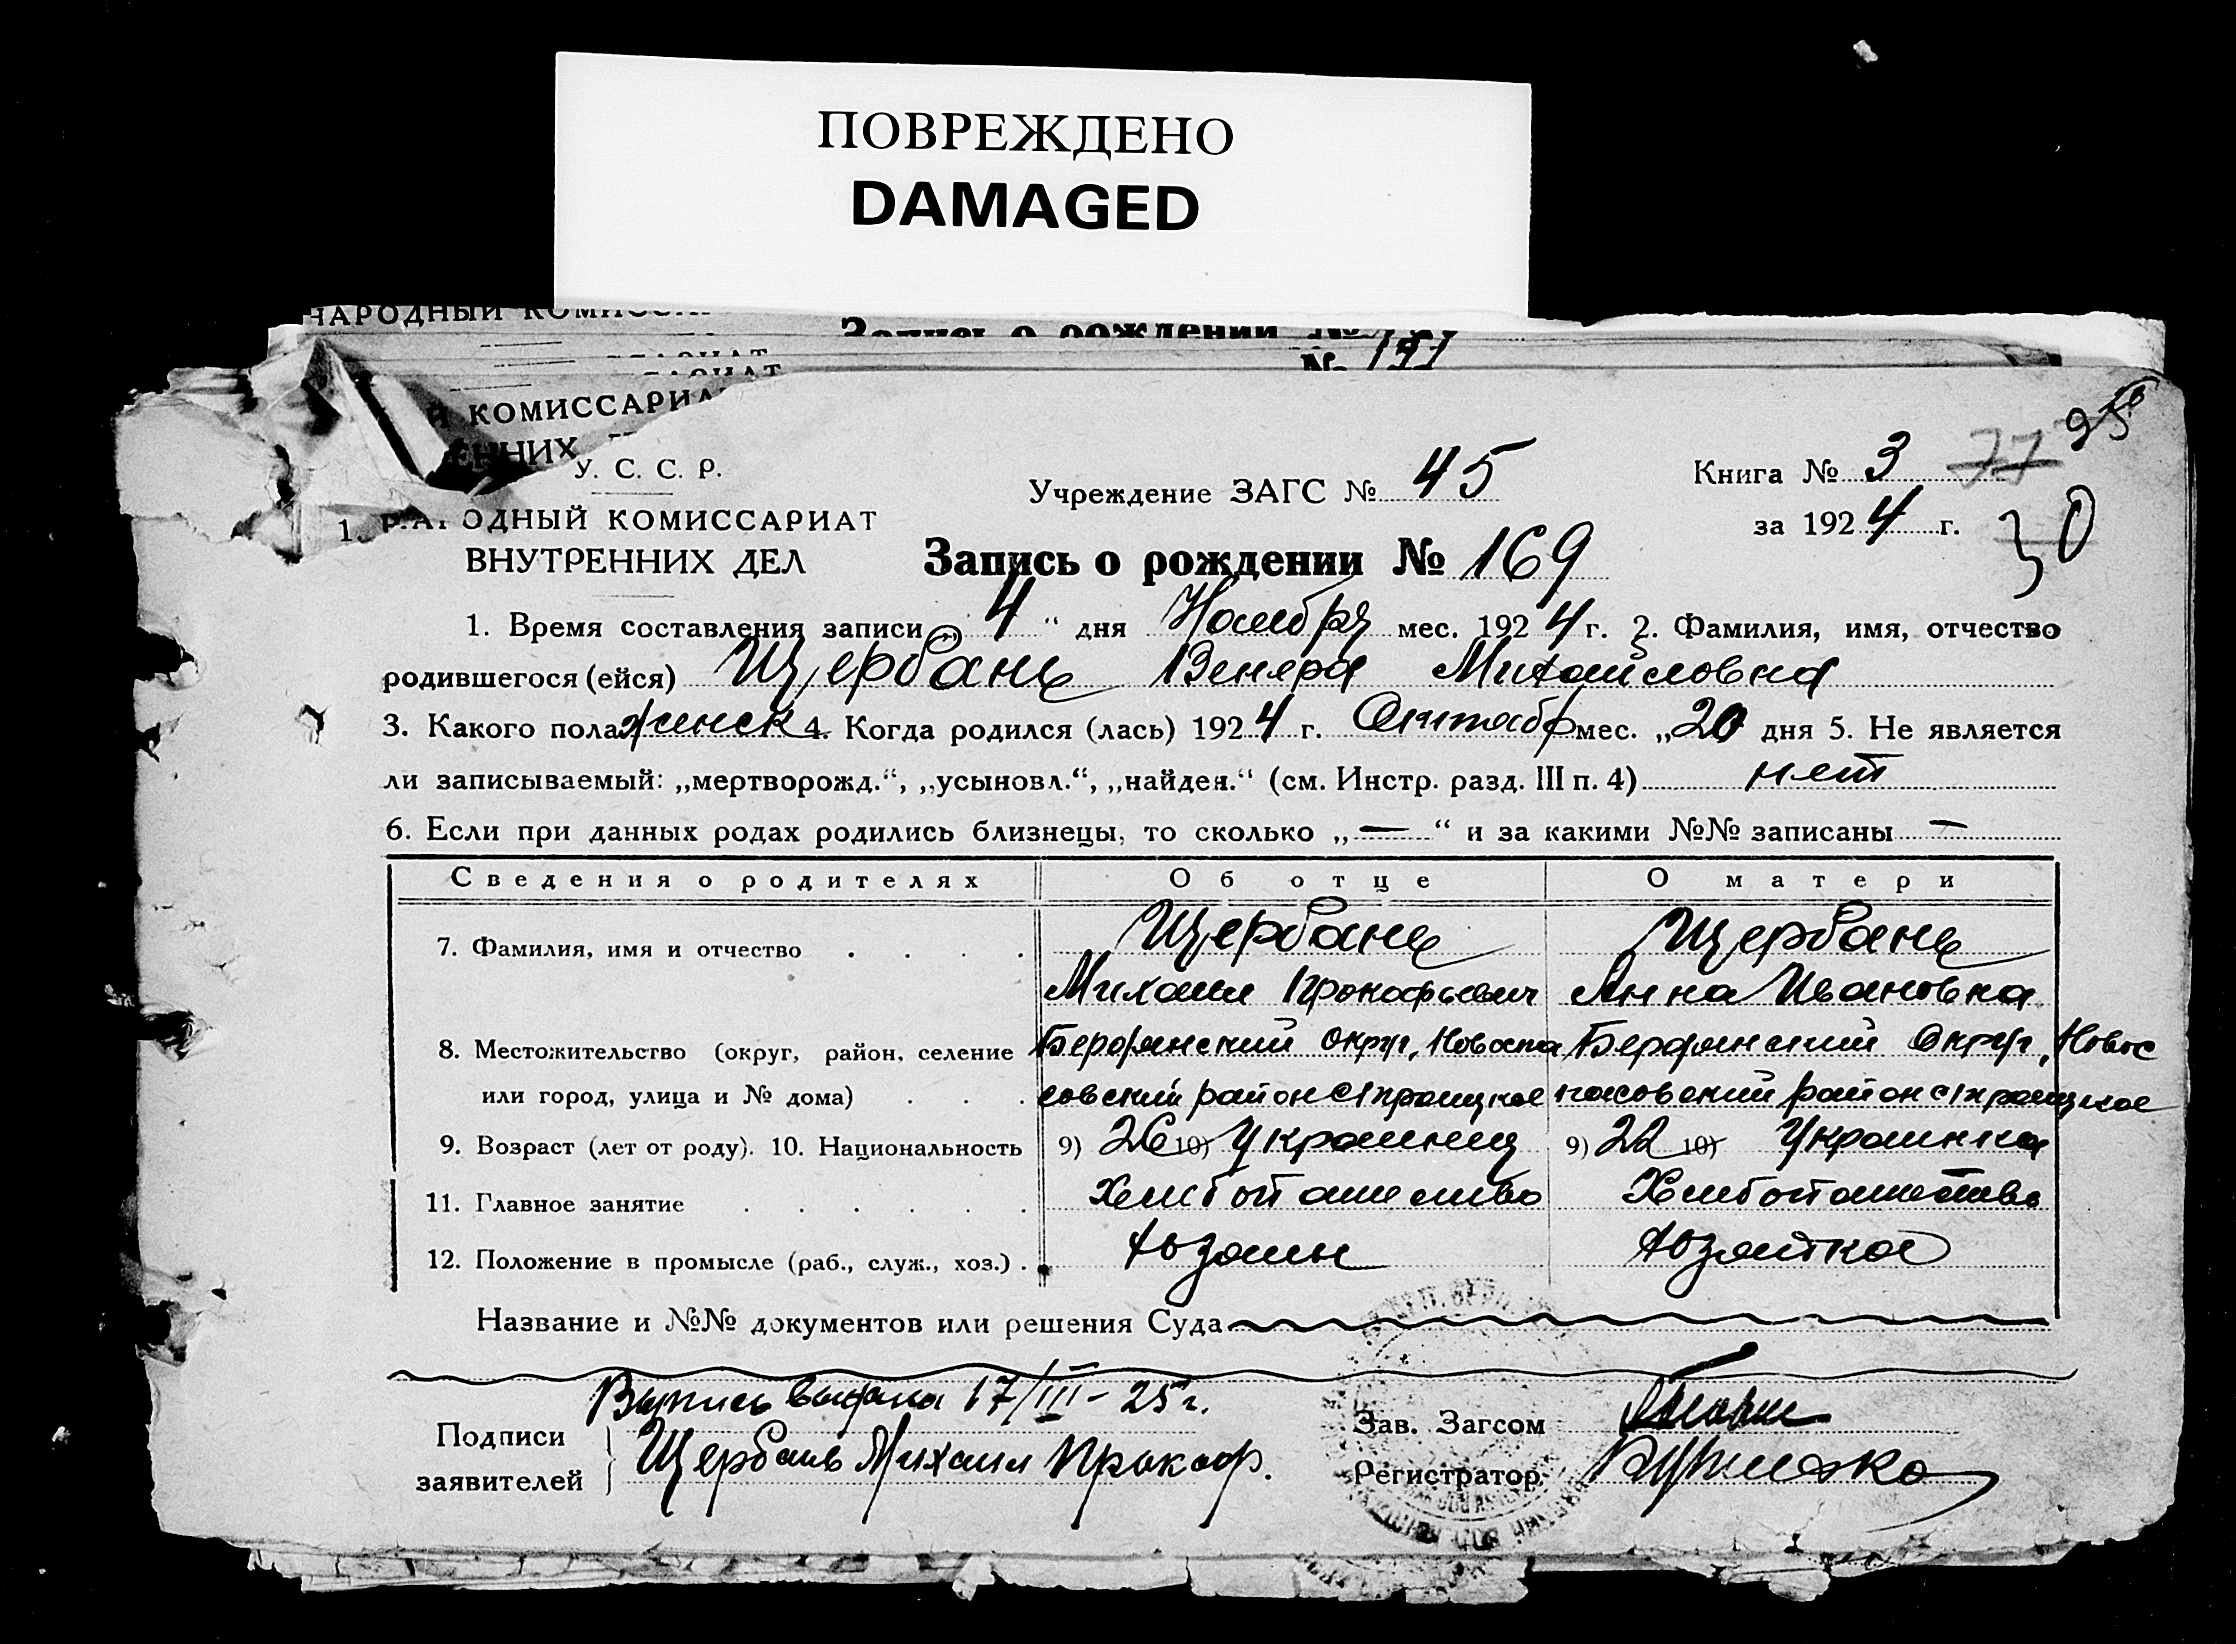 ПОВРЕЖДЕНО
DAMAGED
НАРОДНЫЙ
Запись о рождении №
№ 151
КОМИССАРИА
У. С. С. Р.
Учреждение ЗАГС № 45
Книга № 3 77
за 1924 г. 30
НАРОДНЫЙ КОМИССАРИАТ
ВНУТРЕННИХ ДЕЛ
Запись о рождении № 169
1. Время составления записи „4“ дня Ноября мес. 1924 г. 2. Фамилия, имя, отчество
родившегося (ейся) Щербань Венера Михайловна
3. Какого пола женск 4. Когда родился (лась) 1924 г. Октябр мес. „20 дня 5. Не является
ли записываемый: „мертворожд.“, „усыновл.“, „найден.“ (см. Инстр. разд. III п. 4) нет
6. Если при данных родах родились близнецы, то сколько „—“ и за какими №№ записаны —
Сведения о родителях Об отце О матери
7. Фамилия, имя и отчество Щербань Щербань
Михаил Прокофьевич Анна Ивановна
8. Местожительство (округ, район, селение Бердянский округ, Новоспа Бердянский Округ, Новос
или город, улица и № дома) совский район с Троицкое пасовский район с Троицкое
9. Возраст (лет от роду). 10. Национальность 9) 26 10) Украинец 9) 22 10) Украинка
11. Главное занятие Хлебопашество Хлебопашество
12. Положение в промысле (раб., служ., хоз.) Хозяин Хозяйка
Название и №№ документов или решения Суда
Выпись выдана 17/III-25 г.
Подписи
заявителей
Щербань Михаил Прокоф.
Зав. Загсом
Регистратор